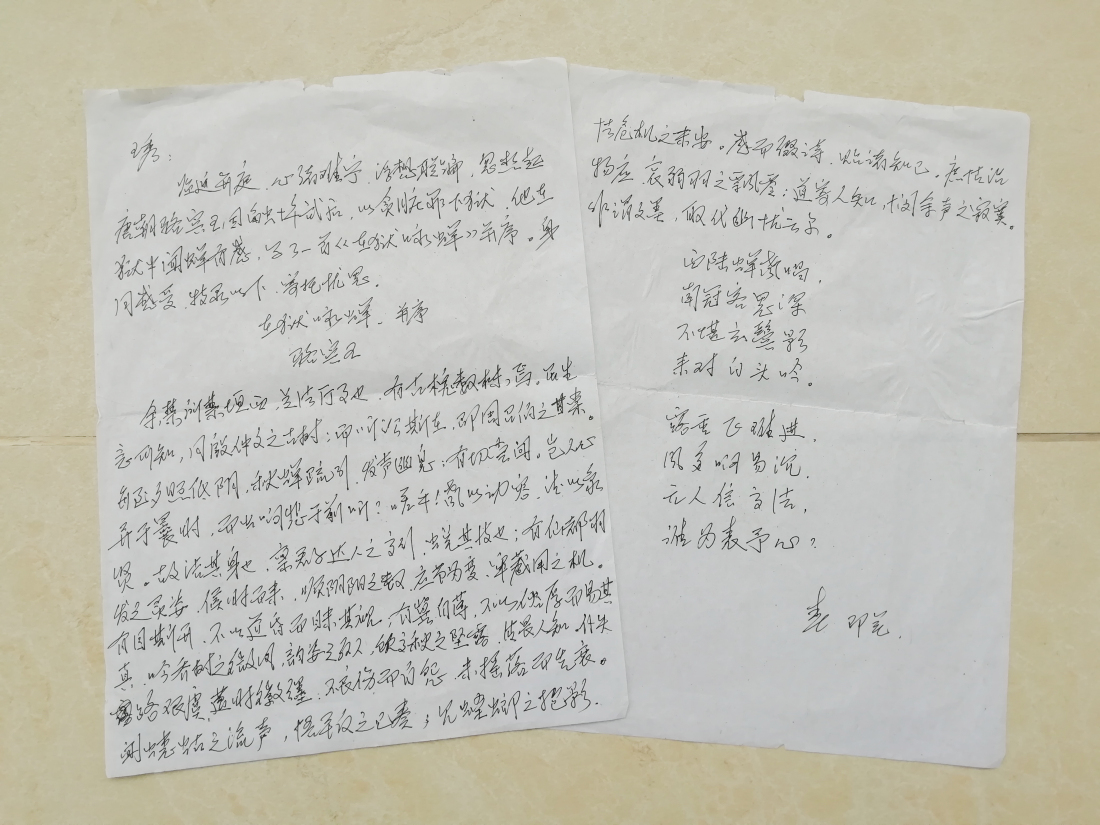 秀：
临近开庭，心绪难宁，浮想联翩，思想起
唐朝骆宾王因向武后，以贪脏罪下狱，他在
狱中闻蝉有感，写了一首《在狱咏蝉》并序。身
同感受，特录以下，寄托忧思。
在狱咏蝉，并序
骆宾王
余禁所禁垣西，是法厅事也，有古槐数株焉。虽生
意可知，同殷仲文之古树；而听讼斯在，即周召伯之甘棠。
每至夕照低阴，秋蝉疏引，发声幽息，有切尝闻。岂人心
异于曩时，而虫响悲于前听？嗟乎！声以动容，德以象
贤。故洁其身也，禀君子达人之高行；蜕其皮也，有仙都羽
化之灵姿。候时而来，顺阴阳之数；应节为变，审藏用之机。
有目斯开，不以道昏而昧其视；有翼自薄，不以俗厚而易其
真。吟乔树之微风，韵姿天纵；饮高秋之坠露，清畏人知。仆失
路艰虞，遭时徽纆。不哀伤而自怨，未摇落而先衰。
闻蟪蛄之流声，悟平反之已奏；见螳螂之抱影，
怯危机之未安。感而缀诗，贻诸知己。庶情沿
物应，哀弱羽之飘零；道寄人知，悯余声之寂寞。
非谓文墨，取代幽忧云尔。
西陆蝉声唱，
南冠客思深
不堪玄鬓影
来对白头吟。
露重飞难进，
风多响易沉，
无人信高洁，
谁为表予心？